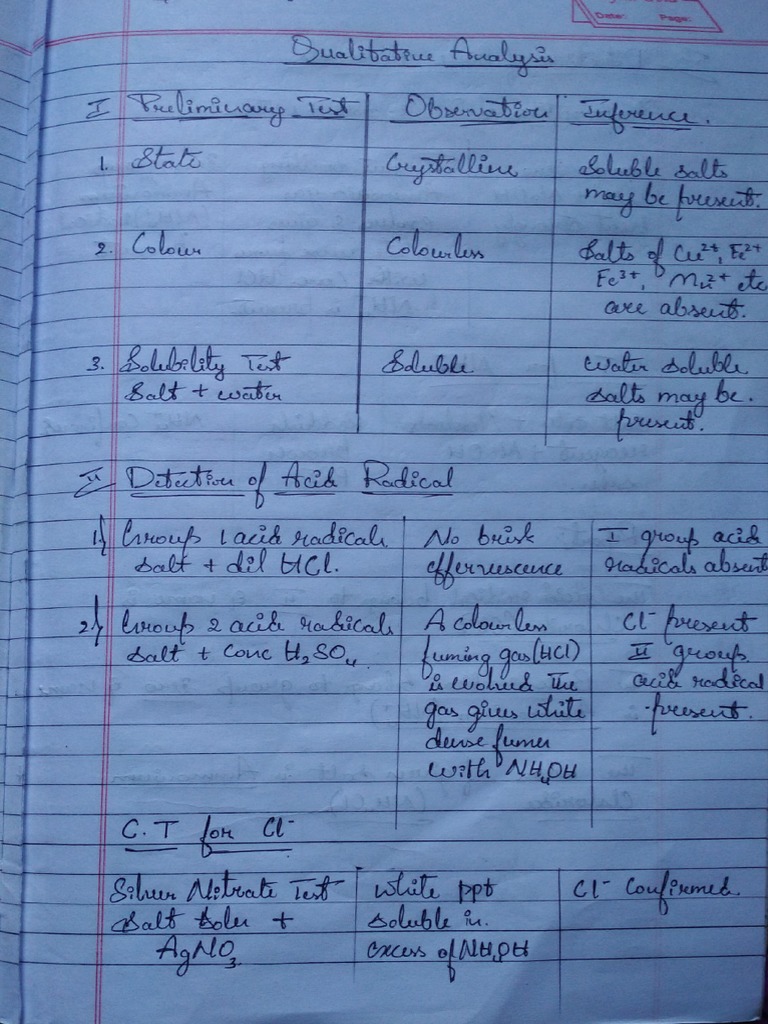 Date: Page:
Qualitative Analysis
I Preliminary Test Observation Inference.
1. State Crystalline Soluble salts
may be present.
2. Colour Colourless Salts of Cu²⁺, Fe²⁺
Fe³⁺, Mn²⁺ etc
are absent.
3. Solubility Test Soluble Water soluble
Salt + water salts may be.
present.
II Detection of Acid Radical
1) Group 1 acid radicals No brisk I group acid
Salt + dil HCl. effervescence radicals absent
2) Group 2 acid radicals A colourless Cl⁻ present
Salt + Conc H₂SO₄ fuming gas (HCl) II group
is evolved The acid radical
gas gives white present.
dense fumes
with NH₄OH
C.T for Cl⁻
Silver Nitrate Test White ppt Cl⁻ Confirmed
Salt soln + soluble in.
AgNO₃ excess of NH₄OH